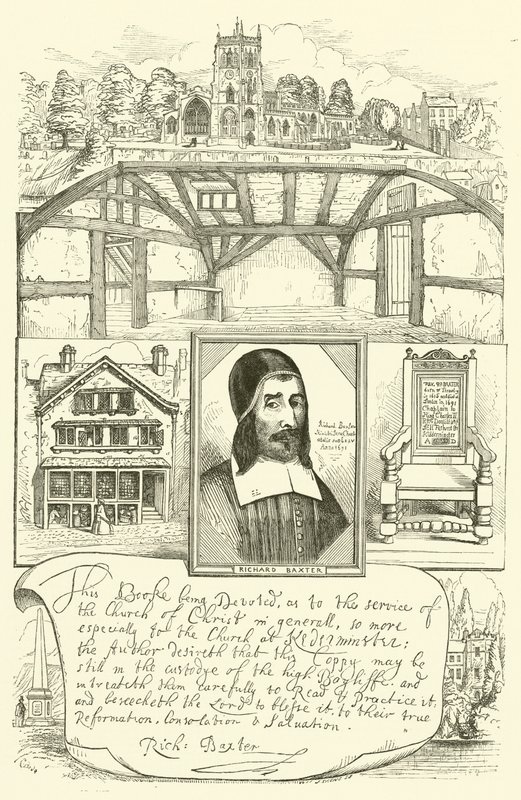 Richard Baxter
RICHARD BAXTER
BAXTER
in
London in 1691
Chaplain to
King Charles II
Kidderminster
A D
This Booke being Devoted, as to the service of
the Church of Christ in generall, so more
especially to the Church at Kederminster;
the Author desireth that this Coppy may be
still in the custodye of the high Bayliffe. and
intreateth them carefully to Read & practice it.
and beseecheth the Lord to blesse it to their true
Reformation, Consolation & Salvation.
Rich: Baxter